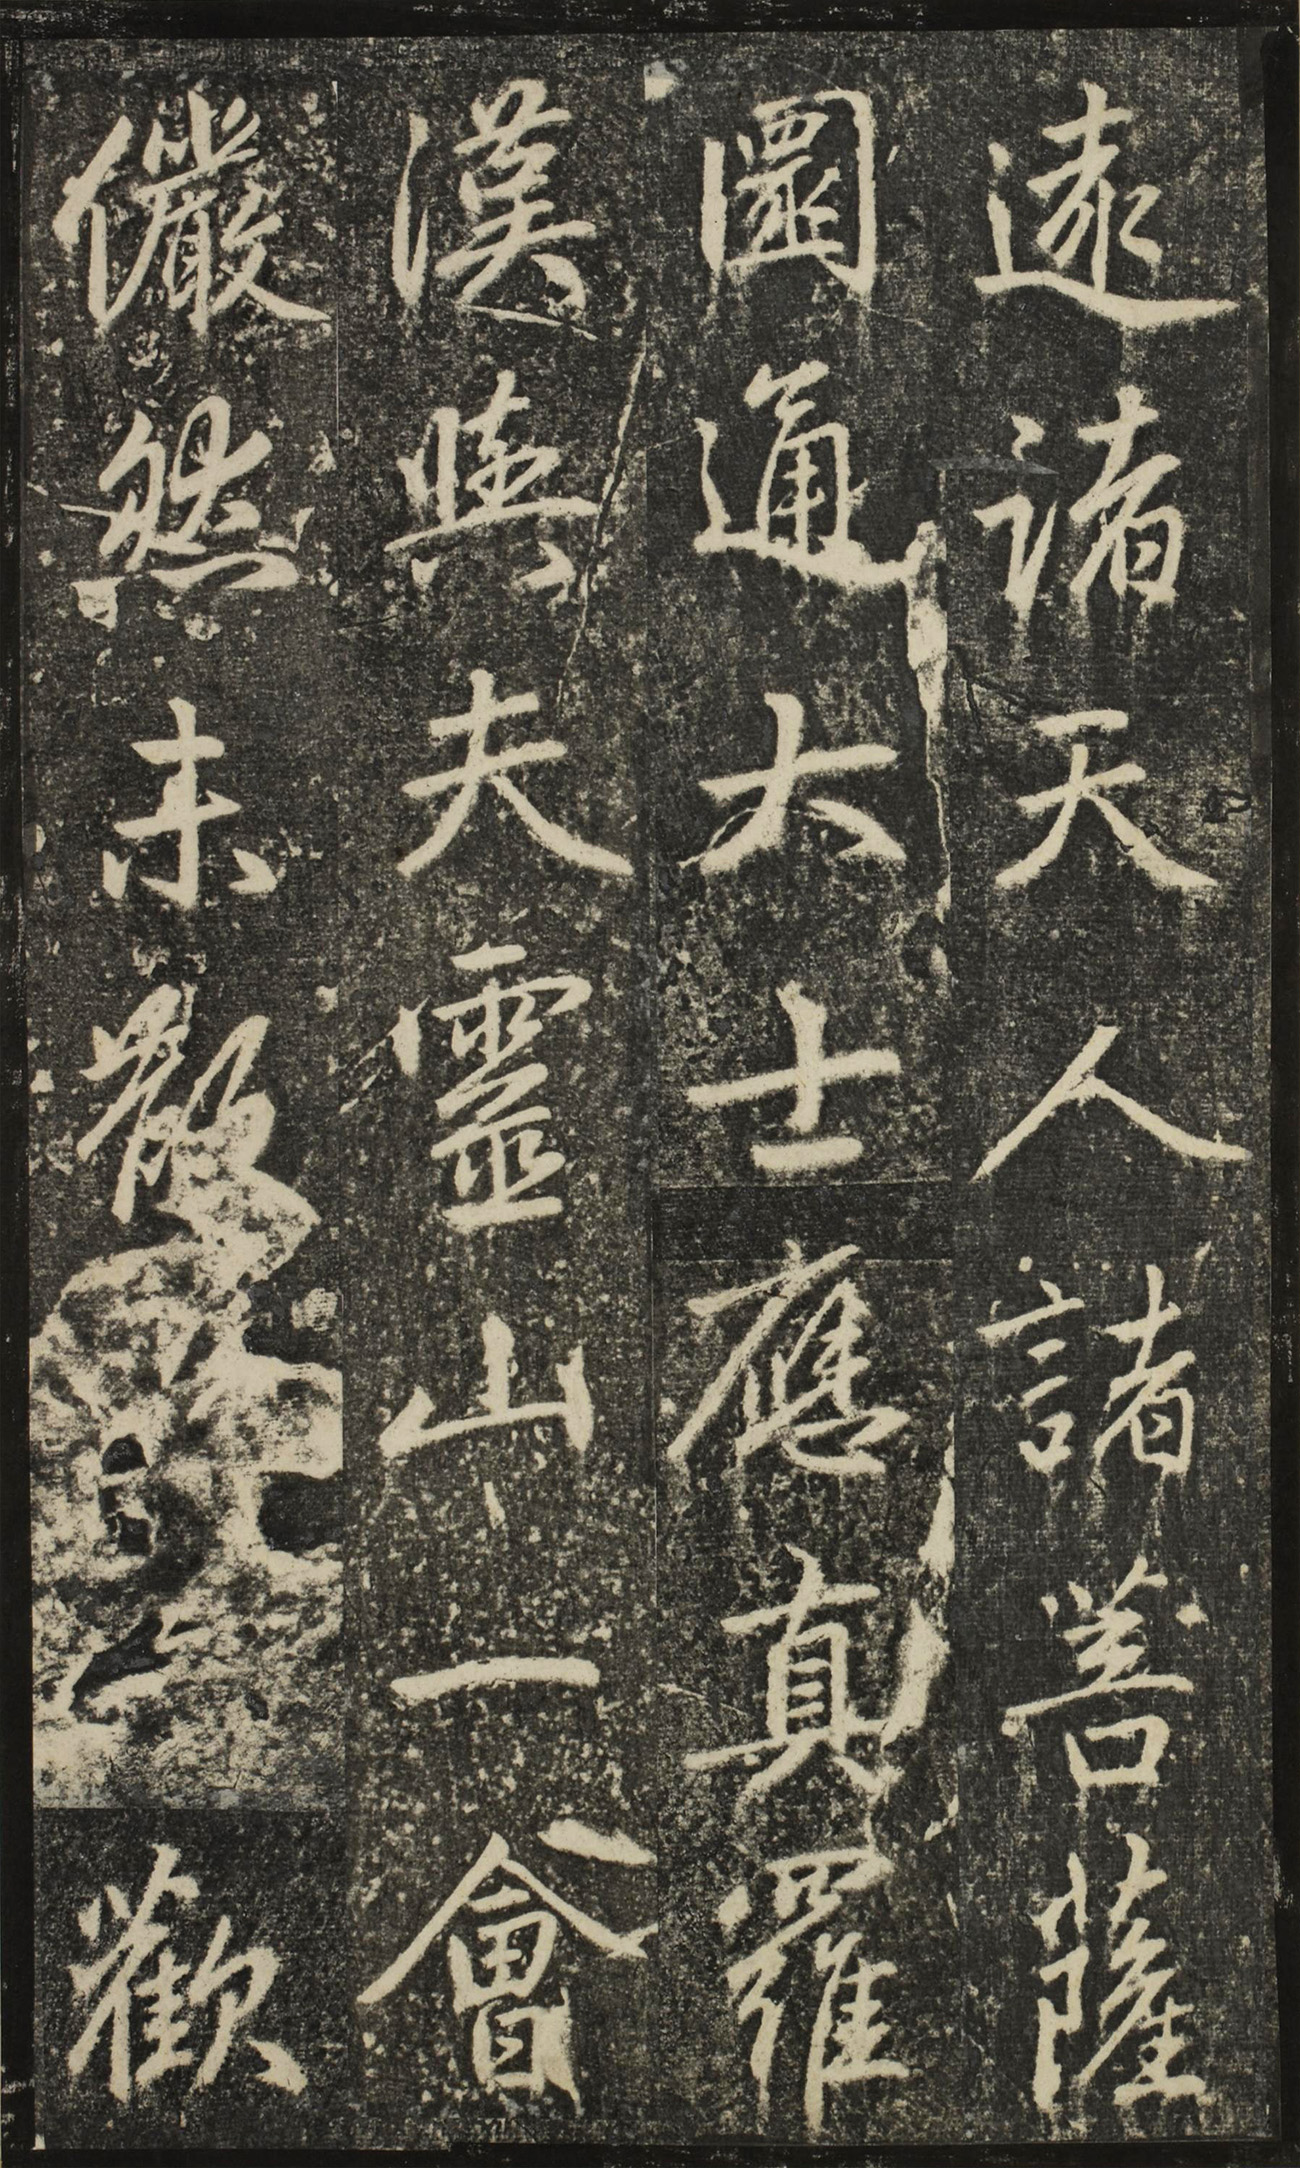 遠諸天人諸菩薩
圓通大士應真羅
漢與夫靈山一會
儼然未散歡